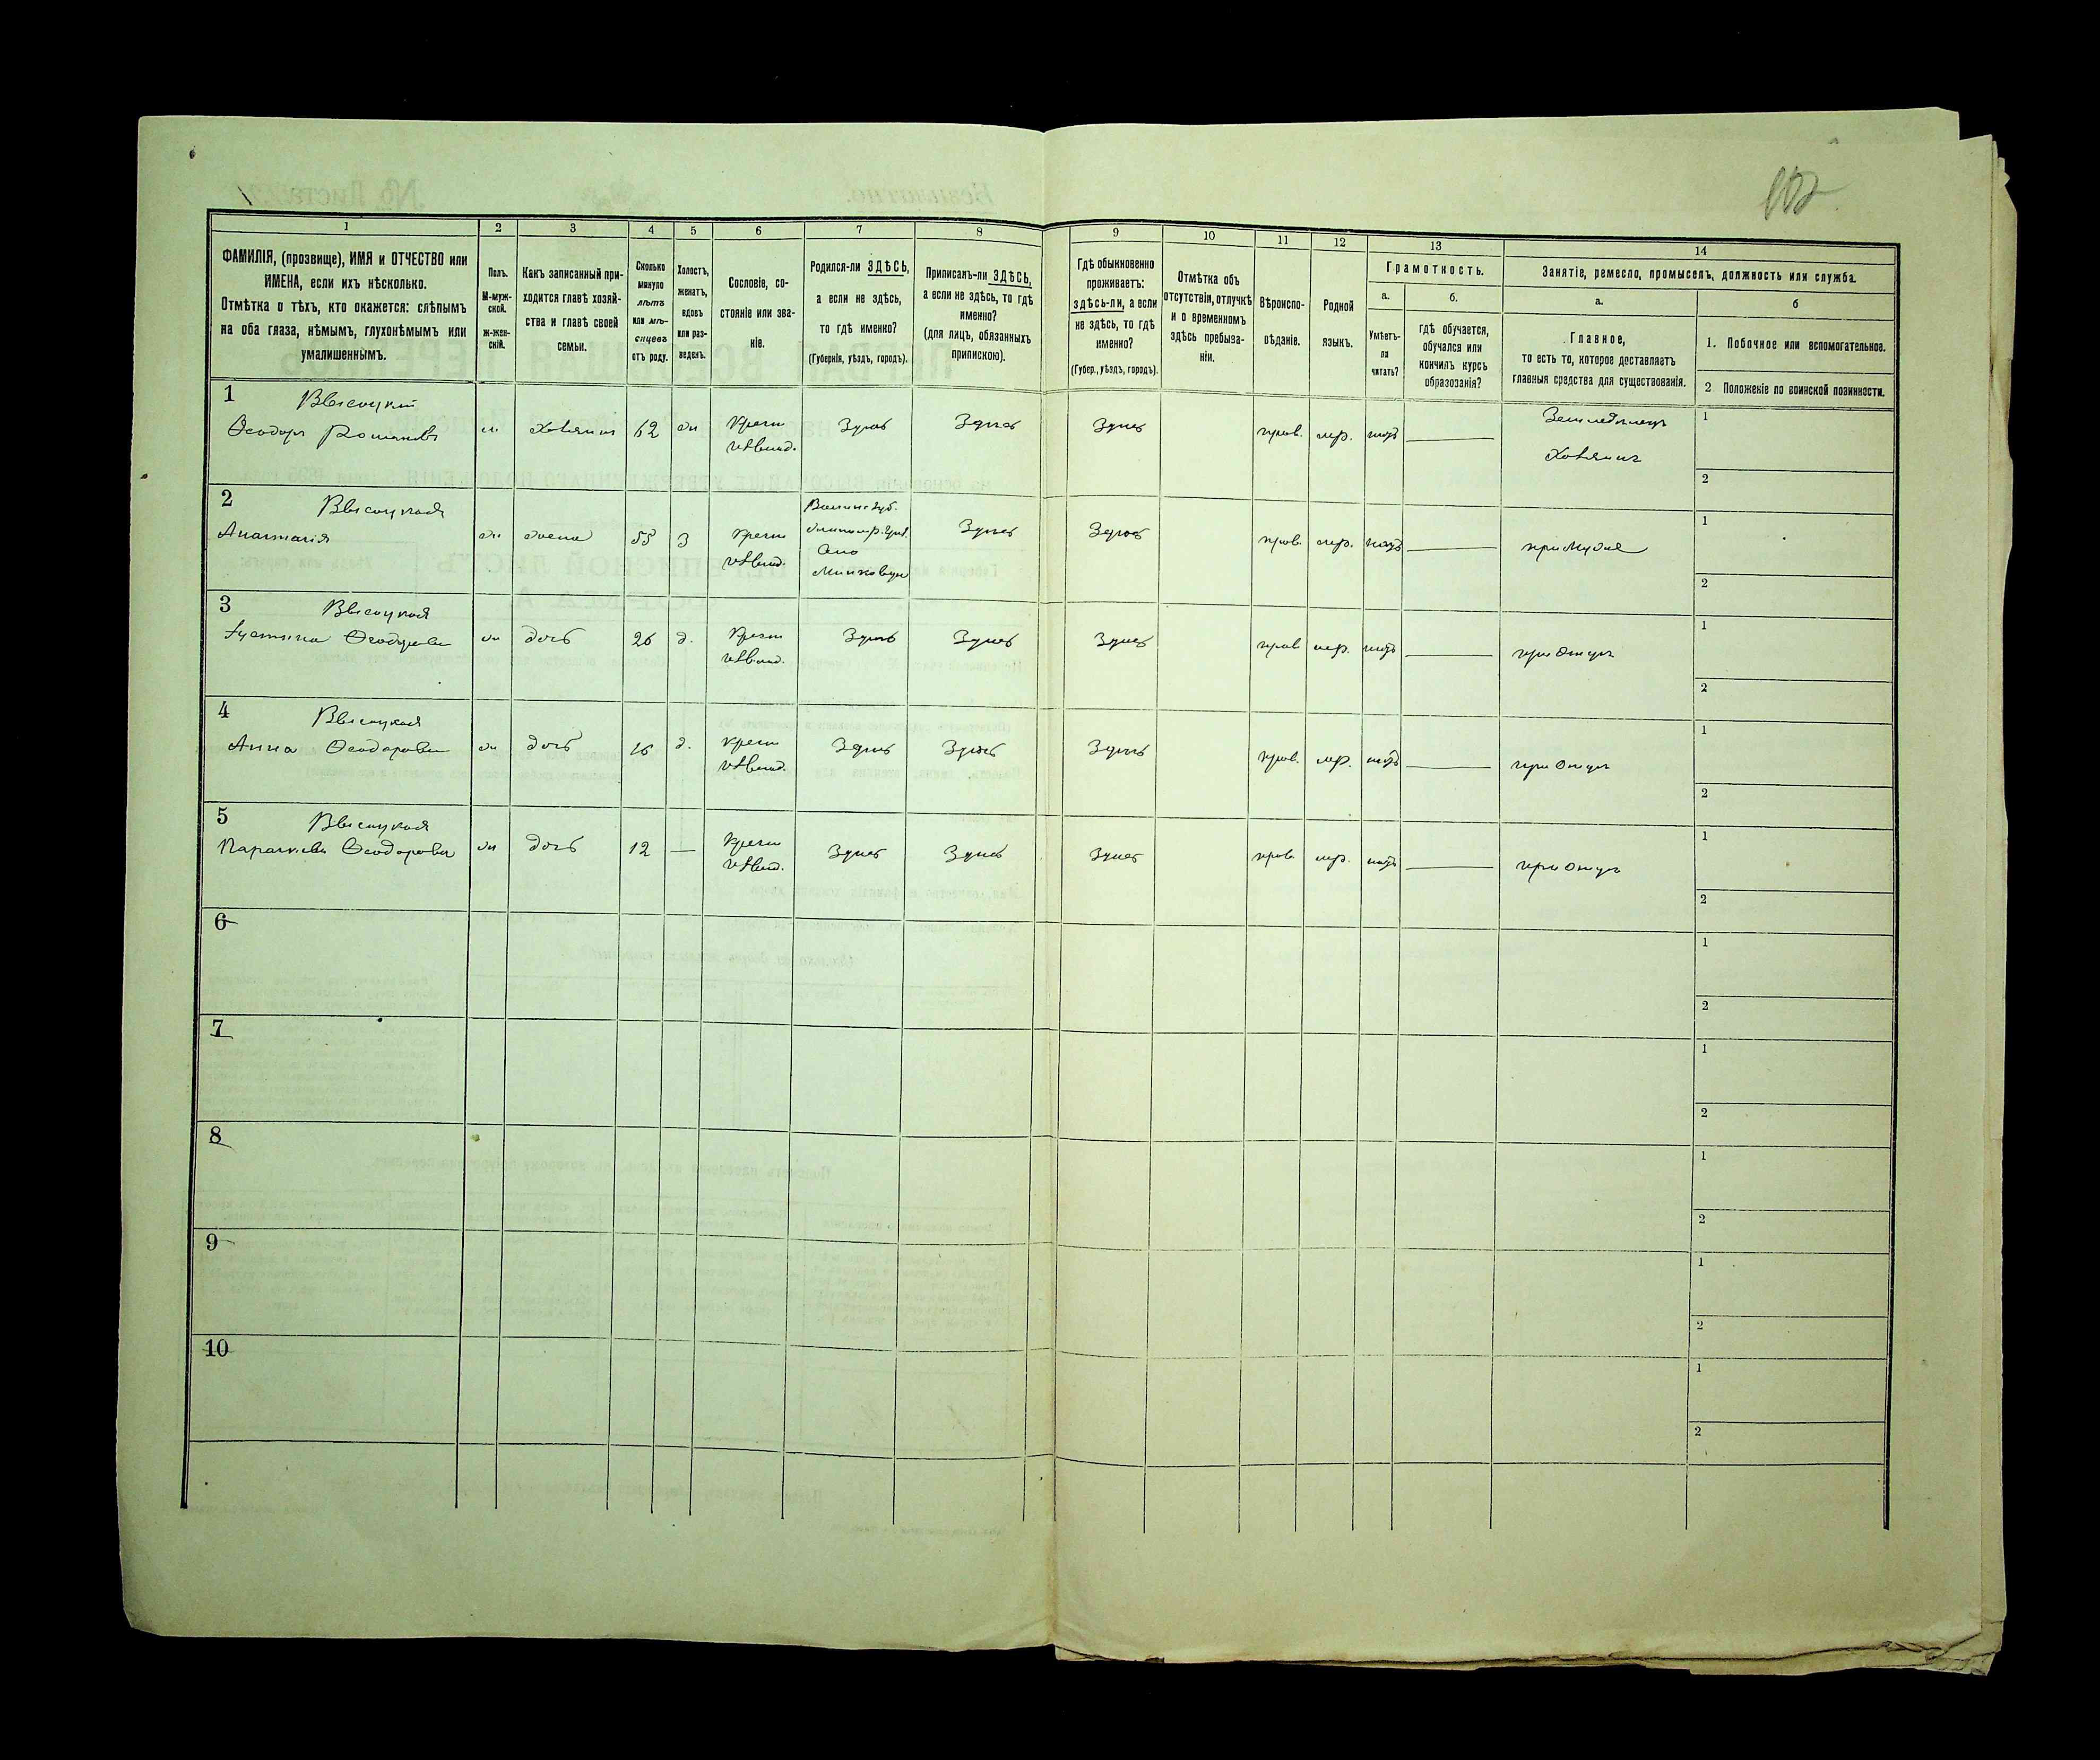 102
1 2 3 4 5 6 7 8 9 10 11 12 13 14
ФАМИЛІЯ, (прозвище), ИМЯ и ОТЧЕСТВО или
ИМЕНА, если ихъ нѣсколько.
Отмѣтка о тѣхъ, кто окажется: слѣпымъ
на оба глаза, нѣмымъ, глухонѣмымъ или
умалишеннымъ.
Полъ.
М-муж-
ской.
Ж-жен-
скій.
Какъ записанный при-
ходится главѣ хозяй-
ства и главѣ своей
семьи.
Сколько
минуло
лѣтъ
или мѣ-
сяцевъ
отъ роду.
Холостъ,
женатъ,
вдовъ
или раз-
веденъ.
Сословіе, со-
стояніе или зва-
ніе.
Родился-ли ЗДѢСЬ,
а если не здѣсь,
то гдѣ именно?
(Губернія, уѣздъ, городъ).
Приписанъ-ли ЗДѢСЬ,
а если не здѣсь, то гдѣ
именно?
(для лицъ, обязанныхъ
припискою).
Гдѣ обыкновенно
проживаетъ:
здѣсь-ли, а если
не здѣсь, то гдѣ
именно?
(Губер., уѣздъ, городъ).
Отмѣтка объ
отсутствіи, отлучкѣ
и о временномъ
здѣсь пребыва-
ніи.
Вѣроиспо-
вѣданіе.
Родной
языкъ.
Грамотность.
а.
б.
Умѣетъ-
ли
читать?
гдѣ обучается,
обучался или
кончилъ курсъ
образованія?
Занятіе, ремесло, промыселъ, должность или служба.
а.
б
Главное,
то есть то, которое доставляетъ
главныя средства для существованія.
1. Побочное или вспомогательное.
2 Положеніе по воинской повинности.
1 Высоцкій
Ѳеодоръ Романовъ м хозяинъ 62 ж Крест. Здѣсь Здѣсь Здѣсь прав. мр. нѣтъ Земледѣлецъ 1
Хозяинъ
2
2 Высоцкая
Анастасія ж жена 55 з Крест. Здѣсь Здѣсь прав. мр. нѣтъ при мужѣ 1
2
3 Высоцкая
Устина Ѳеодорова ж дочь 26 д. Крест. Здѣсь Здѣсь Здѣсь прав. мр. нѣтъ при отцѣ 1
2
4 Высоцкая
Анна Ѳеодорова ж дочь 16 д. Крест. Здѣсь Здѣсь Здѣсь прав. мр. нѣтъ при отцѣ 1
2
5 Высоцкая
Параскева Ѳеодорова ж дочь 12 — Крест. Здѣсь Здѣсь Здѣсь прав. мр. нѣтъ при отцѣ 1
2
6 1
2
7 1
2
8 1
2
9 1
2
10 1
2